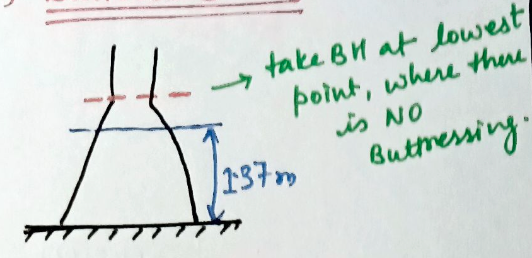 take BH at lowest
point, where there
is NO
Buttressing.
1.37 m